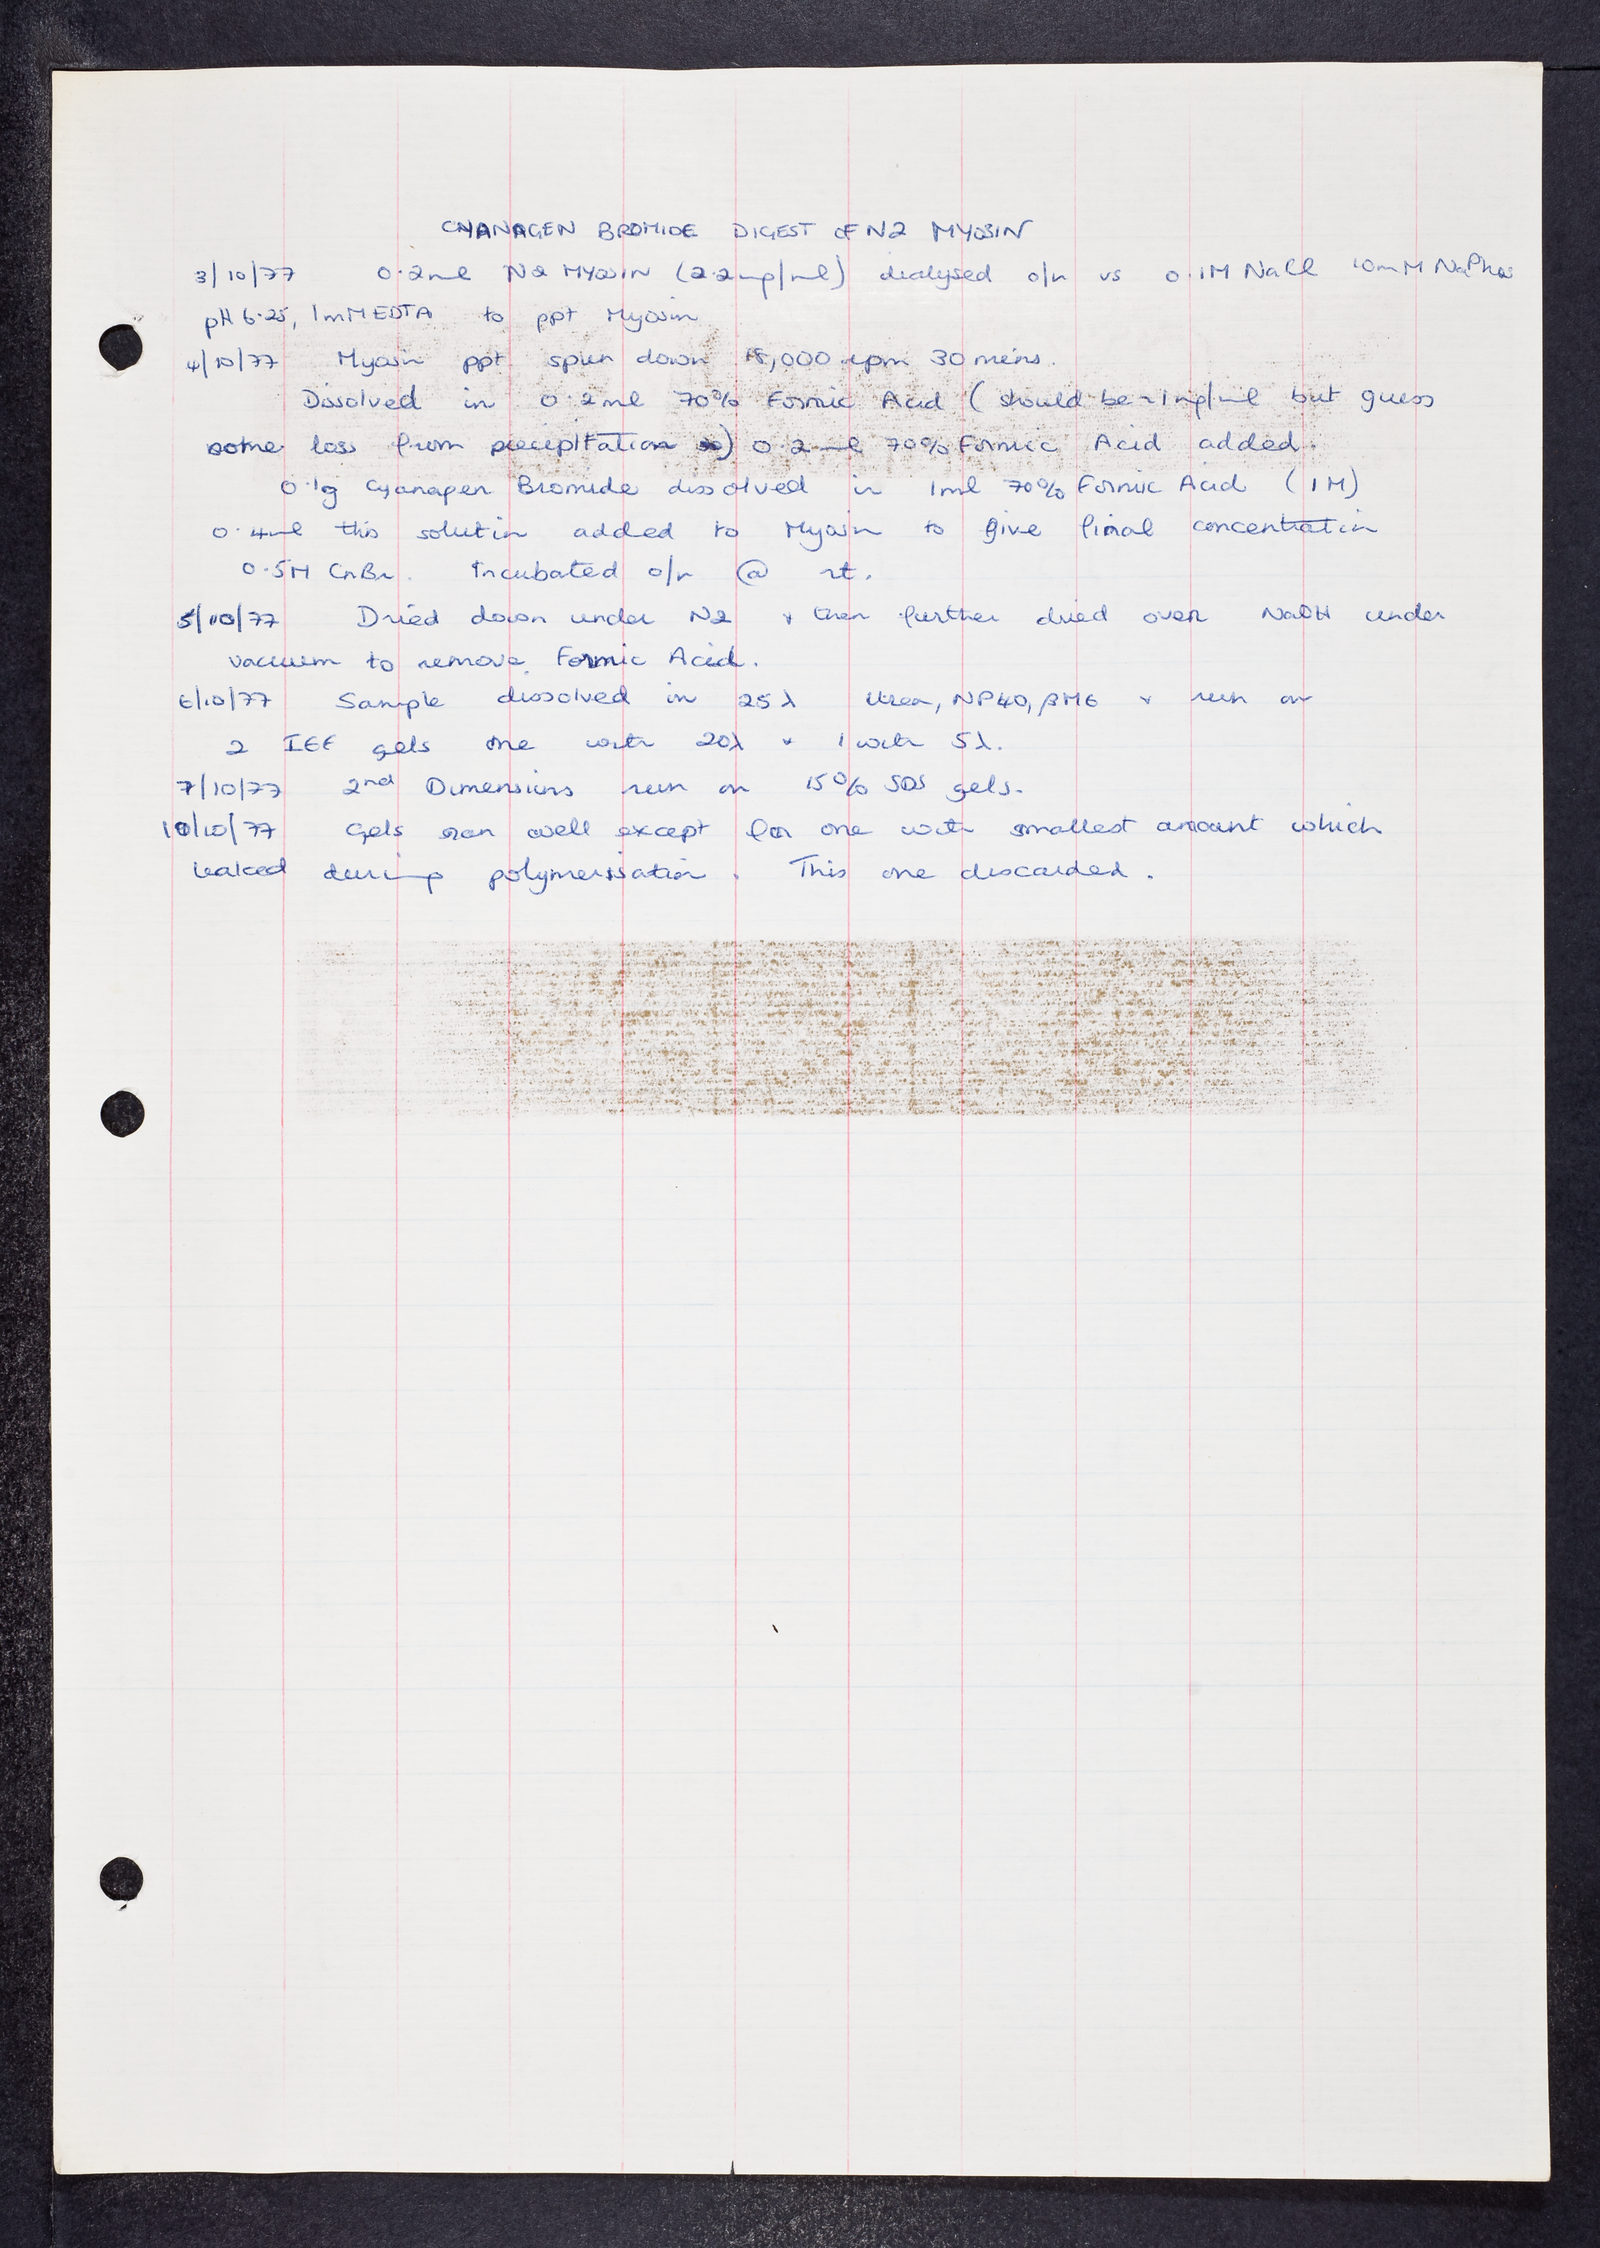 CYANAGEN BROMIDE DIGEST OF N2 MYOSIN
3/10/77 0.2ml N2 Myosin (2.2mg/ml) dialysed o/n vs 0.1M NaCl 10mM NaPhos
pH 6.25, 1mM EDTA to ppt Myosin
4/10/77 Myosin ppt spun down 18,000 rpm 30 mins.
Dissolved in 0.2ml 70% Formic Acid (should be ~1mg/ml but guess
some loss from precipitation) 0.2ml 70% Formic Acid added.
0.1g Cyanagen Bromide dissolved in 1ml 70% Formic Acid (1M)
0.4ml this solution added to Myosin to give final concentration
0.5M CnBr. Incubated o/n @ rt.
5/10/77 Dried down under N2 & then further dried over NaOH under
vacuum to remove Formic Acid.
6/10/77 Sample dissolved in 25λ Urea, NP40, βME & run on
2 IEF gels one with 20λ & 1 with 5λ.
7/10/77 2nd Dimensions run on 15% SDS gels.
10/10/77 Gels ran well except for one with smallest amount which
leaked during polymerisation. This one discarded.